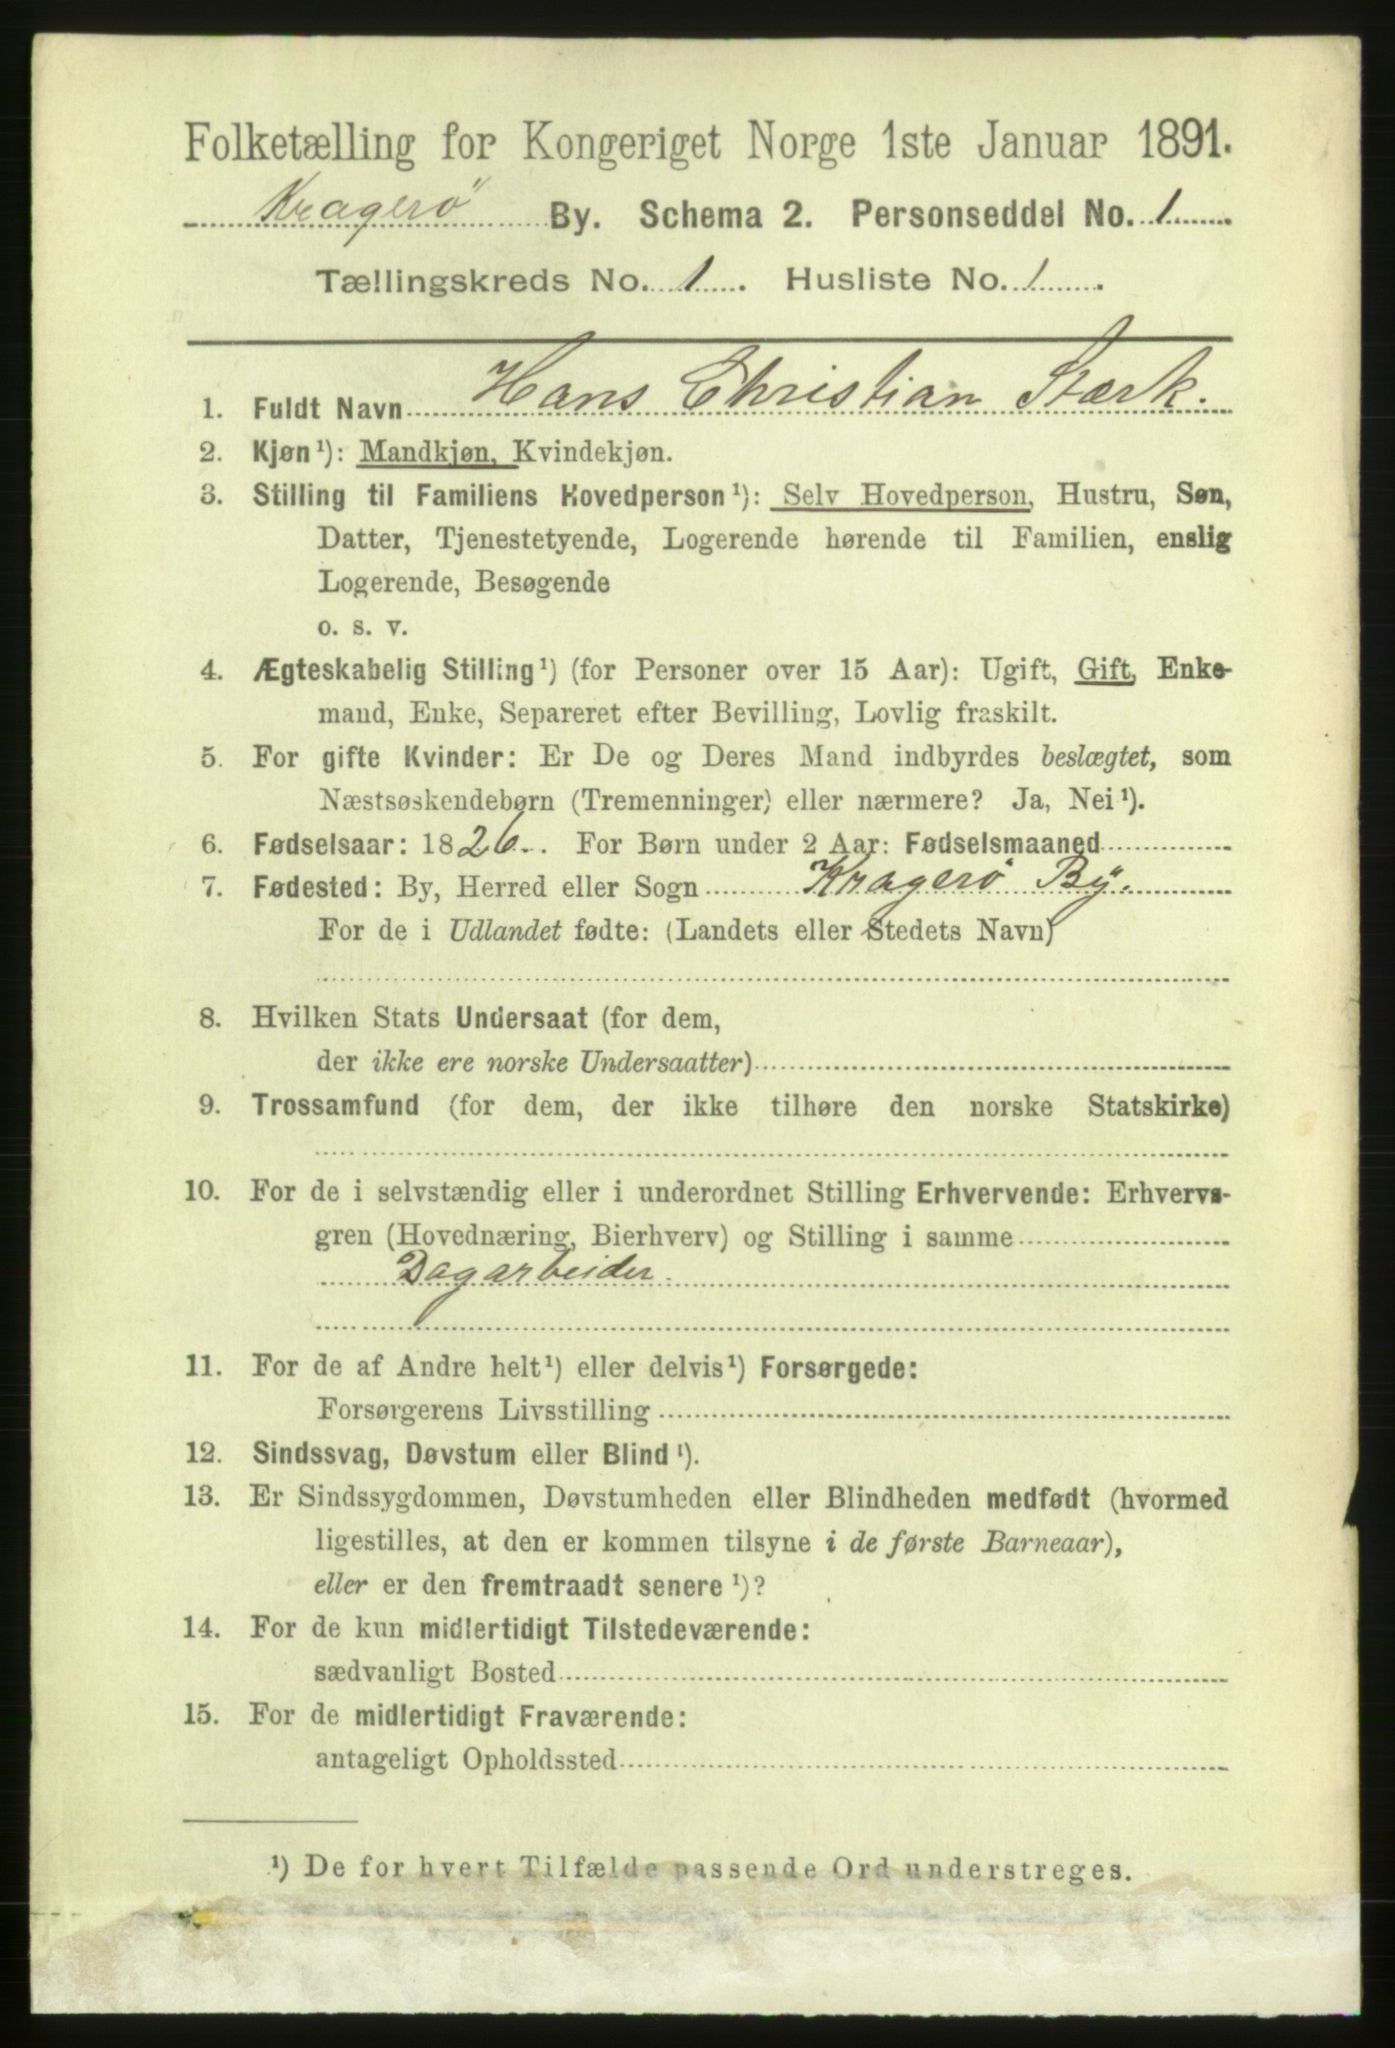 Folketælling for Kongeriget Norge 1ste Januar 1891.
Kragerö By. Schema 2. Personseddel No. 1
Tællingskreds No. 1. Husliste No. 1.
1. Fuldt Navn Hans Christian Stærk.
2. Kjøn¹): Mandkjøn, Kvindekjøn.
3. Stilling til Familiens Hovedperson¹): Selv Hovedperson, Hustru, Søn,
Datter, Tjenestetyende, Logerende hørende til Familien, enslig
Logerende, Besøgende
o. s. v.
4. Ægteskabelig Stilling¹) (for Personer over 15 Aar): Ugift, Gift, Enke-
mand, Enke, Separeret efter Bevilling, Lovlig fraskilt.
5. For gifte Kvinder: Er De og Deres Mand indbyrdes beslægtet, som
Næstsøskendebørn (Tremenninger) eller nærmere? Ja, Nei¹).
6. Fødselsaar: 1826. For Børn under 2 Aar: Fødselsmaaned
7. Fødested: By, Herred eller Sogn Kragerö By.
For de i Udlandet fødte: (Landets eller Stedets Navn)
8. Hvilken Stats Undersaat (for dem,
der ikke ere norske Undersaatter)
9. Trossamfund (for dem, der ikke tilhøre den norske Statskirke)
10. For de i selvstændig eller i underordnet Stilling Erhvervende: Erhvervs-
gren (Hovednæring, Bierhverv) og Stilling i samme
Dagarbeider.
11. For de af Andre helt¹) eller delvis¹) Forsørgede:
Forsørgerens Livsstilling
12. Sindssvag, Døvstum eller Blind¹).
13. Er Sindssygdommen, Døvstumheden eller Blindheden medfødt (hvormed
ligestilles, at den er kommen tilsyne i de første Barneaar),
eller er den fremtraadt senere¹)?
14. For de kun midlertidigt Tilstedeværende:
sædvanligt Bosted
15. For de midlertidigt Fraværende:
antageligt Opholdssted
¹) De for hvert Tilfælde passende Ord understreges.